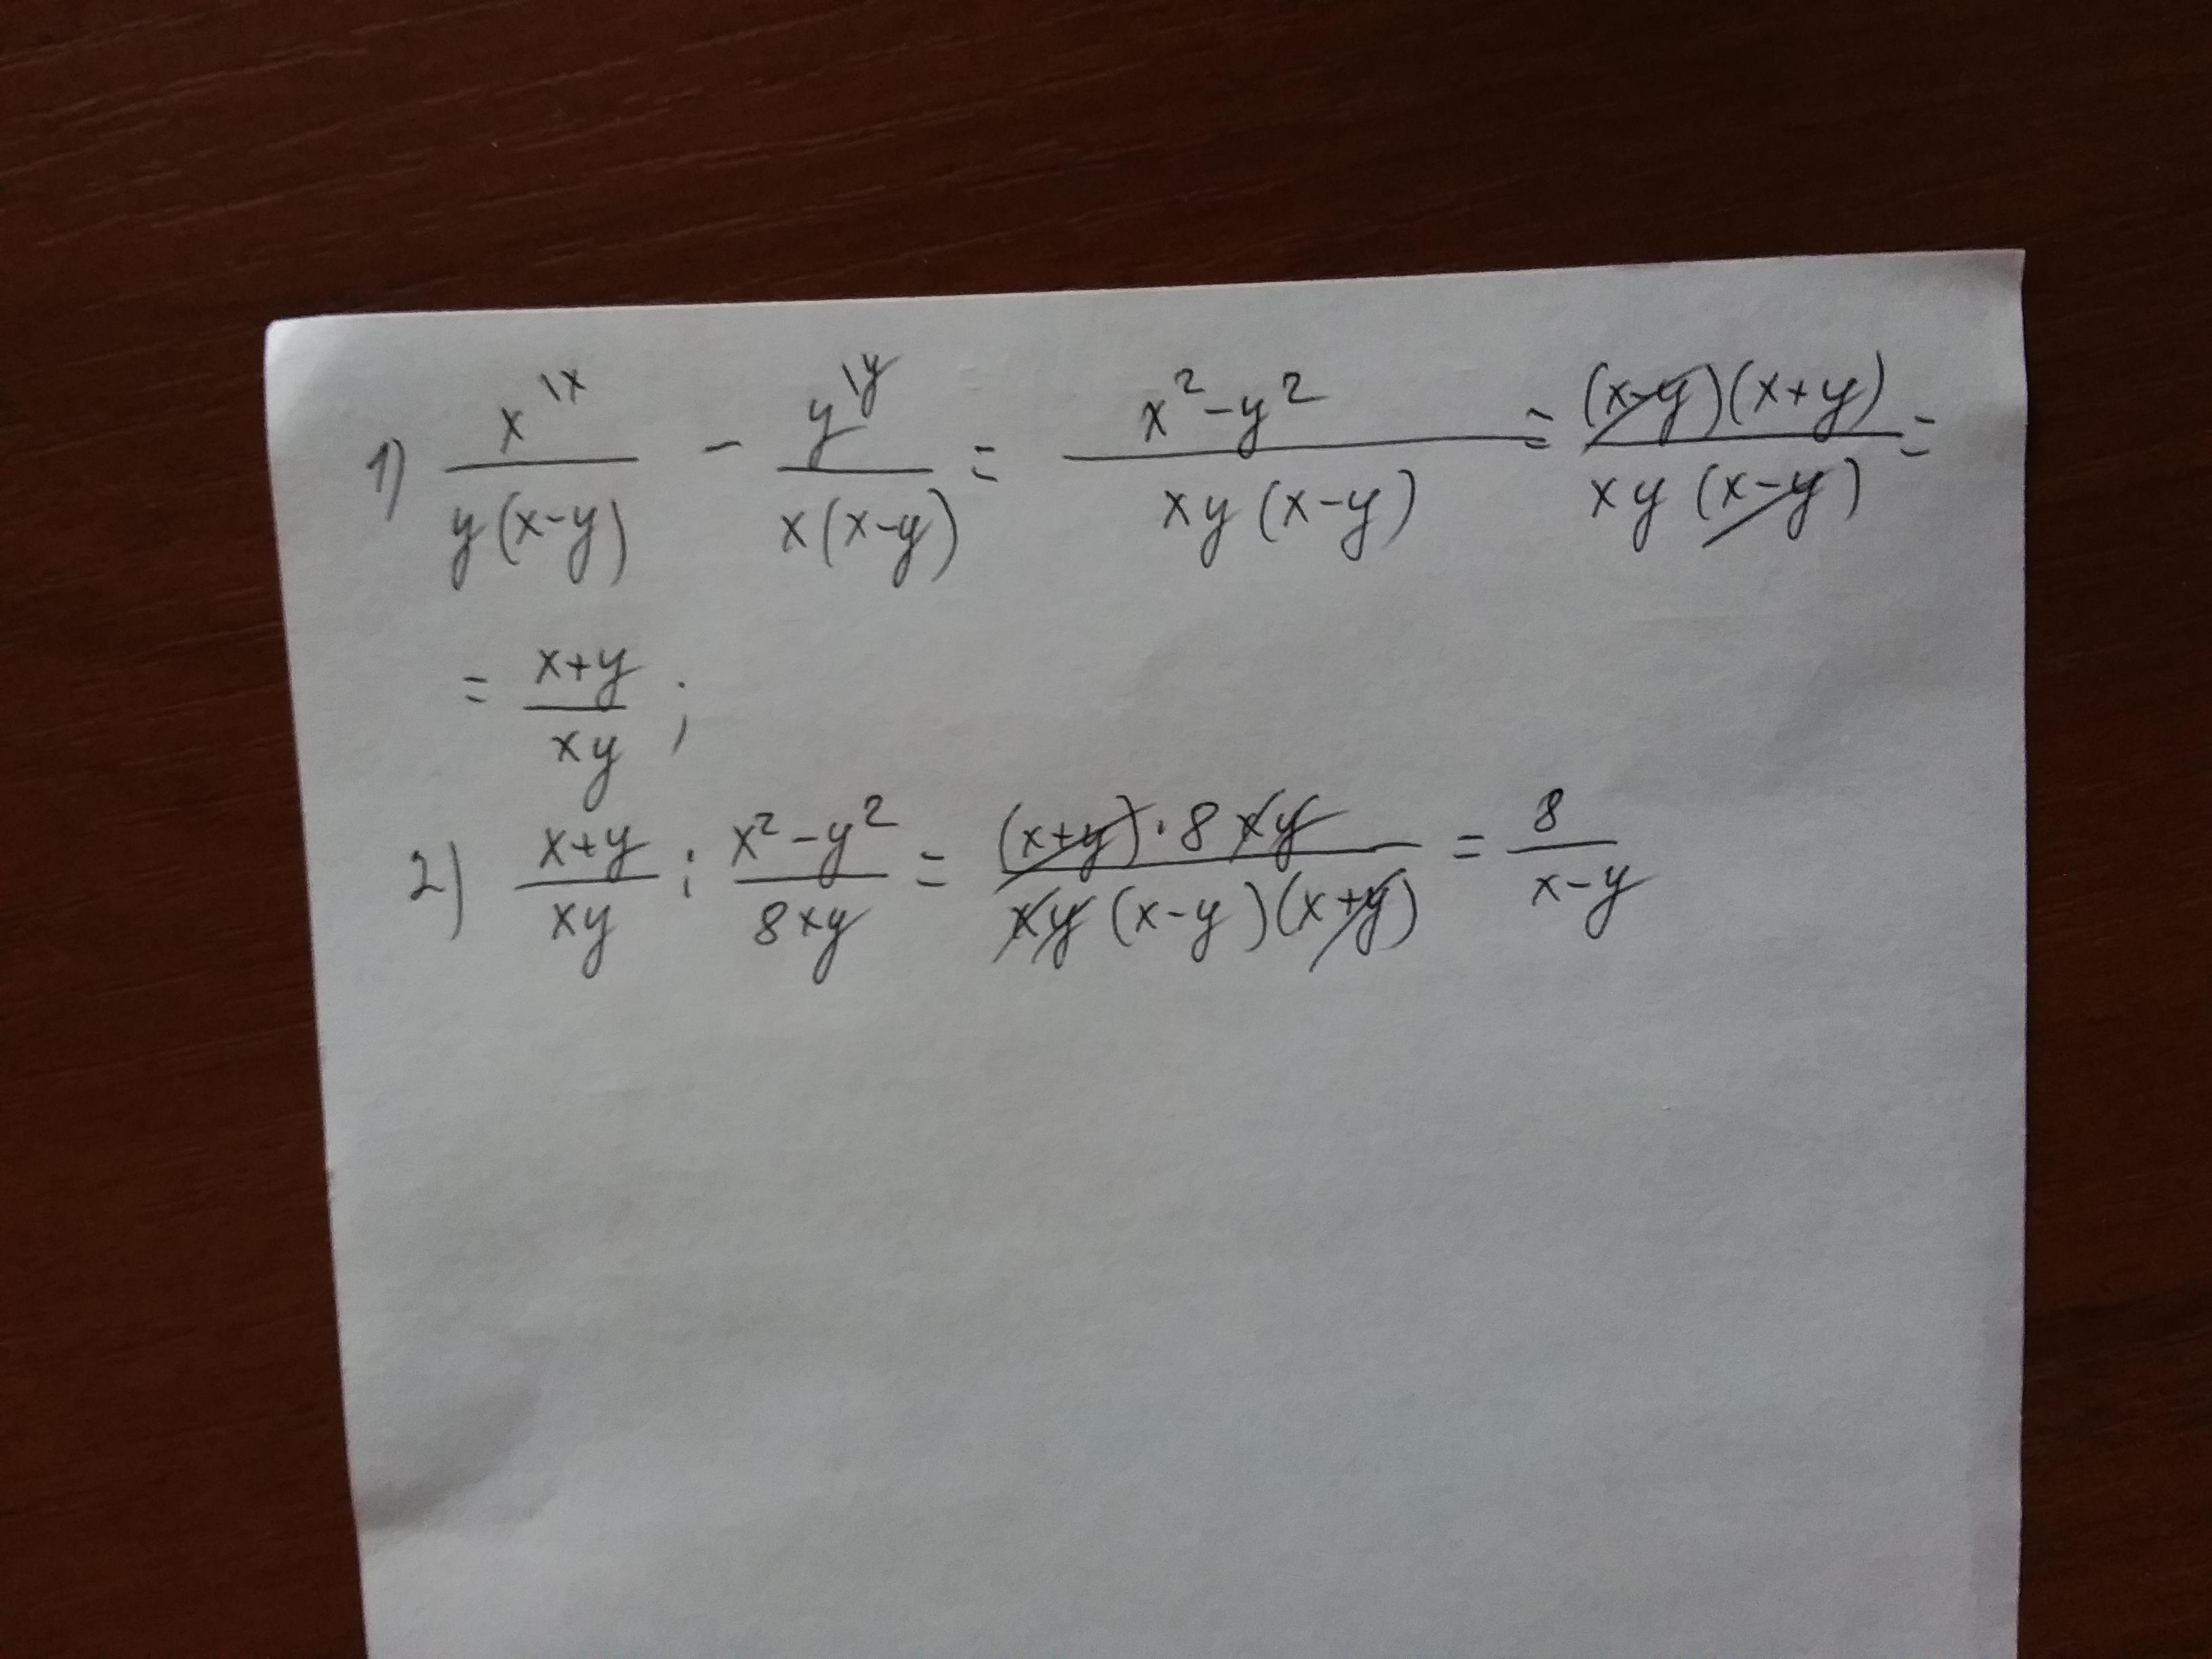 1) x\x / y(x-y) - y\y / x(x-y) = x²-y² / xy(x-y) = (x-y)(x+y) / xy(x-y) =
= x+y / xy ;
2) x+y / xy : x²-y² / 8xy = (x+y)·8xy / xy(x-y)(x+y) = 8 / x-y